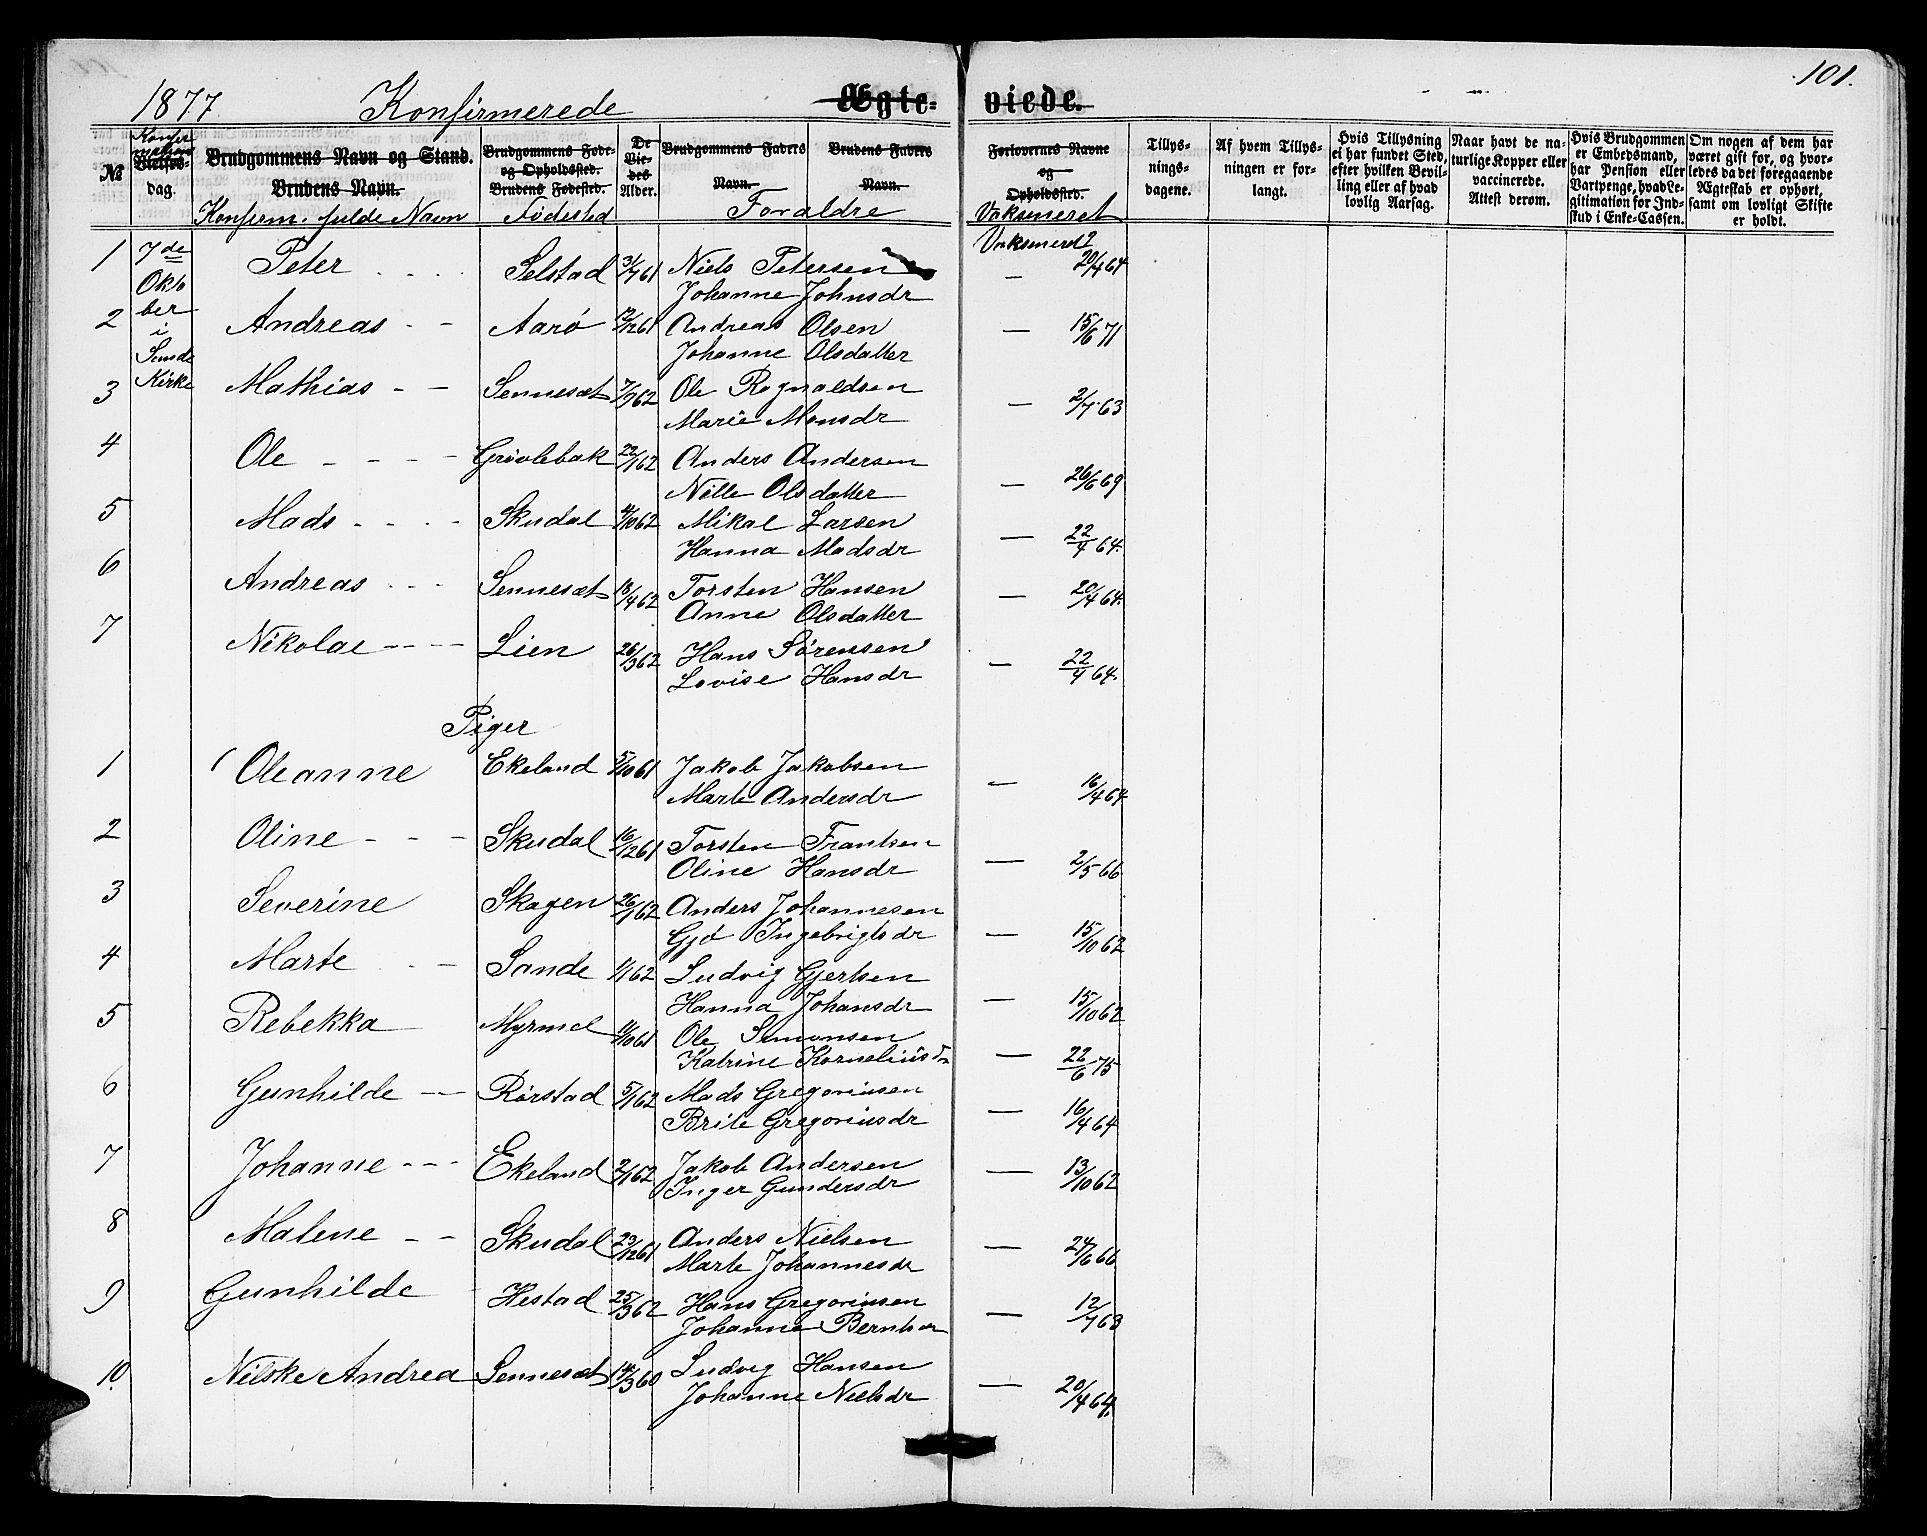 101.
1877 Konfirmerede Ægte- viede.
№
Konfir
mations
Vielses-
dag.
Brudgommens Navn og Stand.
Brudens Navn.
Konfirm. fulde Navn
Brudgommens Føde-
og Opholdssted.
Brudens Fødested.
Fødested
De
Vie-
des
Alder.
Brudgommens Faders
Navn.
Brudens Faders
Navn.
Forældre
Forlovernes Navne
og
Opholdssted.
Vaksineret
Tillys-
nings-
dagene.
Af hvem Tillys-
ningen er for-
langt.
Hvis Tillysning
ei har fundet Sted,
efter hvilken Bevil-
ling eller af hvad
lovlig Aarsag.
Naar havt de na-
turlige Kopper eller
vaccinerede.
Attest derom.
Hvis Brudgommen
er Embedsmand,
har Pension eller
Vartpenge, hvad Le-
gitimation for Ind-
skud i Enke-Cassen.
Om nogen af dem har
været gift for, og hvor-
ledes da det foregaaende
Ægteskab er ophørt,
samt om lovligt Skifte
er holdt.
7de
Okto
ber
i
Sande
Kirke
1 Peter Selstad 31/7 61 Niels Petersen Vaksineret
Johanne Johnsdr — 20/4 64
2 Andreas - - Aarø 12/12 61 Andreas Olsen — 15/6 71
Johanne Olsdatter
3 Mathias - - Sennesæt 7/9 62 Ole Rognaldsen — 2/7 63
Marie Monsdr
4 Ole - - - - Grøvlebak 22/1 62 Anders Andersen
Nille Olsdatter — 26/6 69
5 Mads - - - - Skudal 4/10 62 Mikal Larsen
Hanna Madsdr — 22/4 64.
6 Andreas - - - Sennesæt 18/4 62 Torsten Hansen — 20/4 64.
Anne Olsdatter
7 Nikolai - - - - Lien 26/3 62 Hans Sørensen — 22/4 64.
Lovise Hansdr
Piger
1 Oleanne Ekeland 5/10 61 Jakob Jakobsen
Marte Andersdr — 16/4 64
2 Oline - - - Skudal 16/12 61 Torsten Frantsen
Oline Hansdr — 2/5 66
3 Severine Skagen 26/1 62 Anders Johannesen
Gjd Ingebrigtsdr — 15/10 62
4 Marte - - Sande 1/1 62 Ludvig Gjertsen
Hanna Johansdr — 15/10 62
5 Rebekka Myrmel 11/10 61 Ole Simonsen
Katrine Korneliusdr — 22/6 75
6 Gunhilde - - Rørstad 5/1 62 Mads Gregoriusen
Brite Gregoriusdr — 16/4 64
7 Johanne - - - Ekeland 2/1 62 Jakob Andersen — 13/10 62
Inger Gundersdr
8 Malene - - Skudal 23/12 61 Anders Nielsen — 24/6 66
Marte Johannesdr
9 Gunhilde Hestad 25/3 62 Hans Gregoriusen
Johanne Berntsdr — 12/7 63
10. Nilske Andrea Sennesæt 14/3 60 Ludvig Hansen
Johanne Nielsdr — 20/4 64.